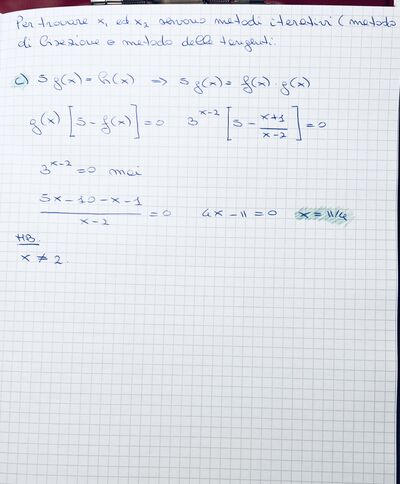 Per trovare x₁ ed x₂ servono metodi iterativi (metodo
di bisezione o metodo delle tangenti.
c) 5g(x) = h(x) ⇒ 5g(x) = f(x) · g(x)
g(x) [5 - f(x)] = 0   3^(x-2) [5 - (x+1)/(x-2)] = 0
3^(x-2) = 0 mai
(5x - 10 - x - 1)/(x-2) = 0   4x - 11 = 0   x = 11/4
NB.
x ≠ 2.